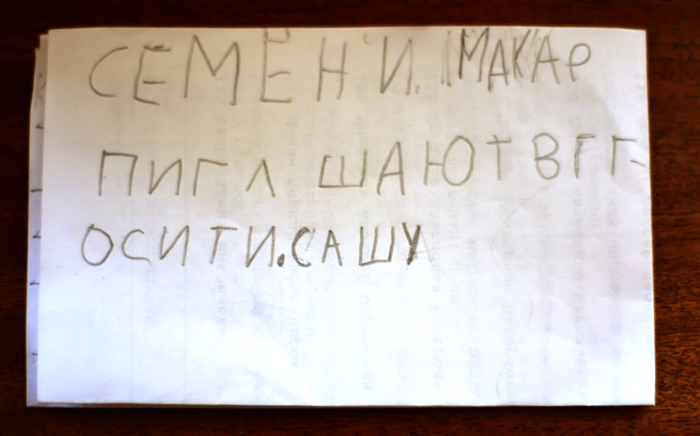 СЕМЁН И. МАКАР
ПИГЛ ШАЮТ ВГГ-
ОСИТИ.САШУ